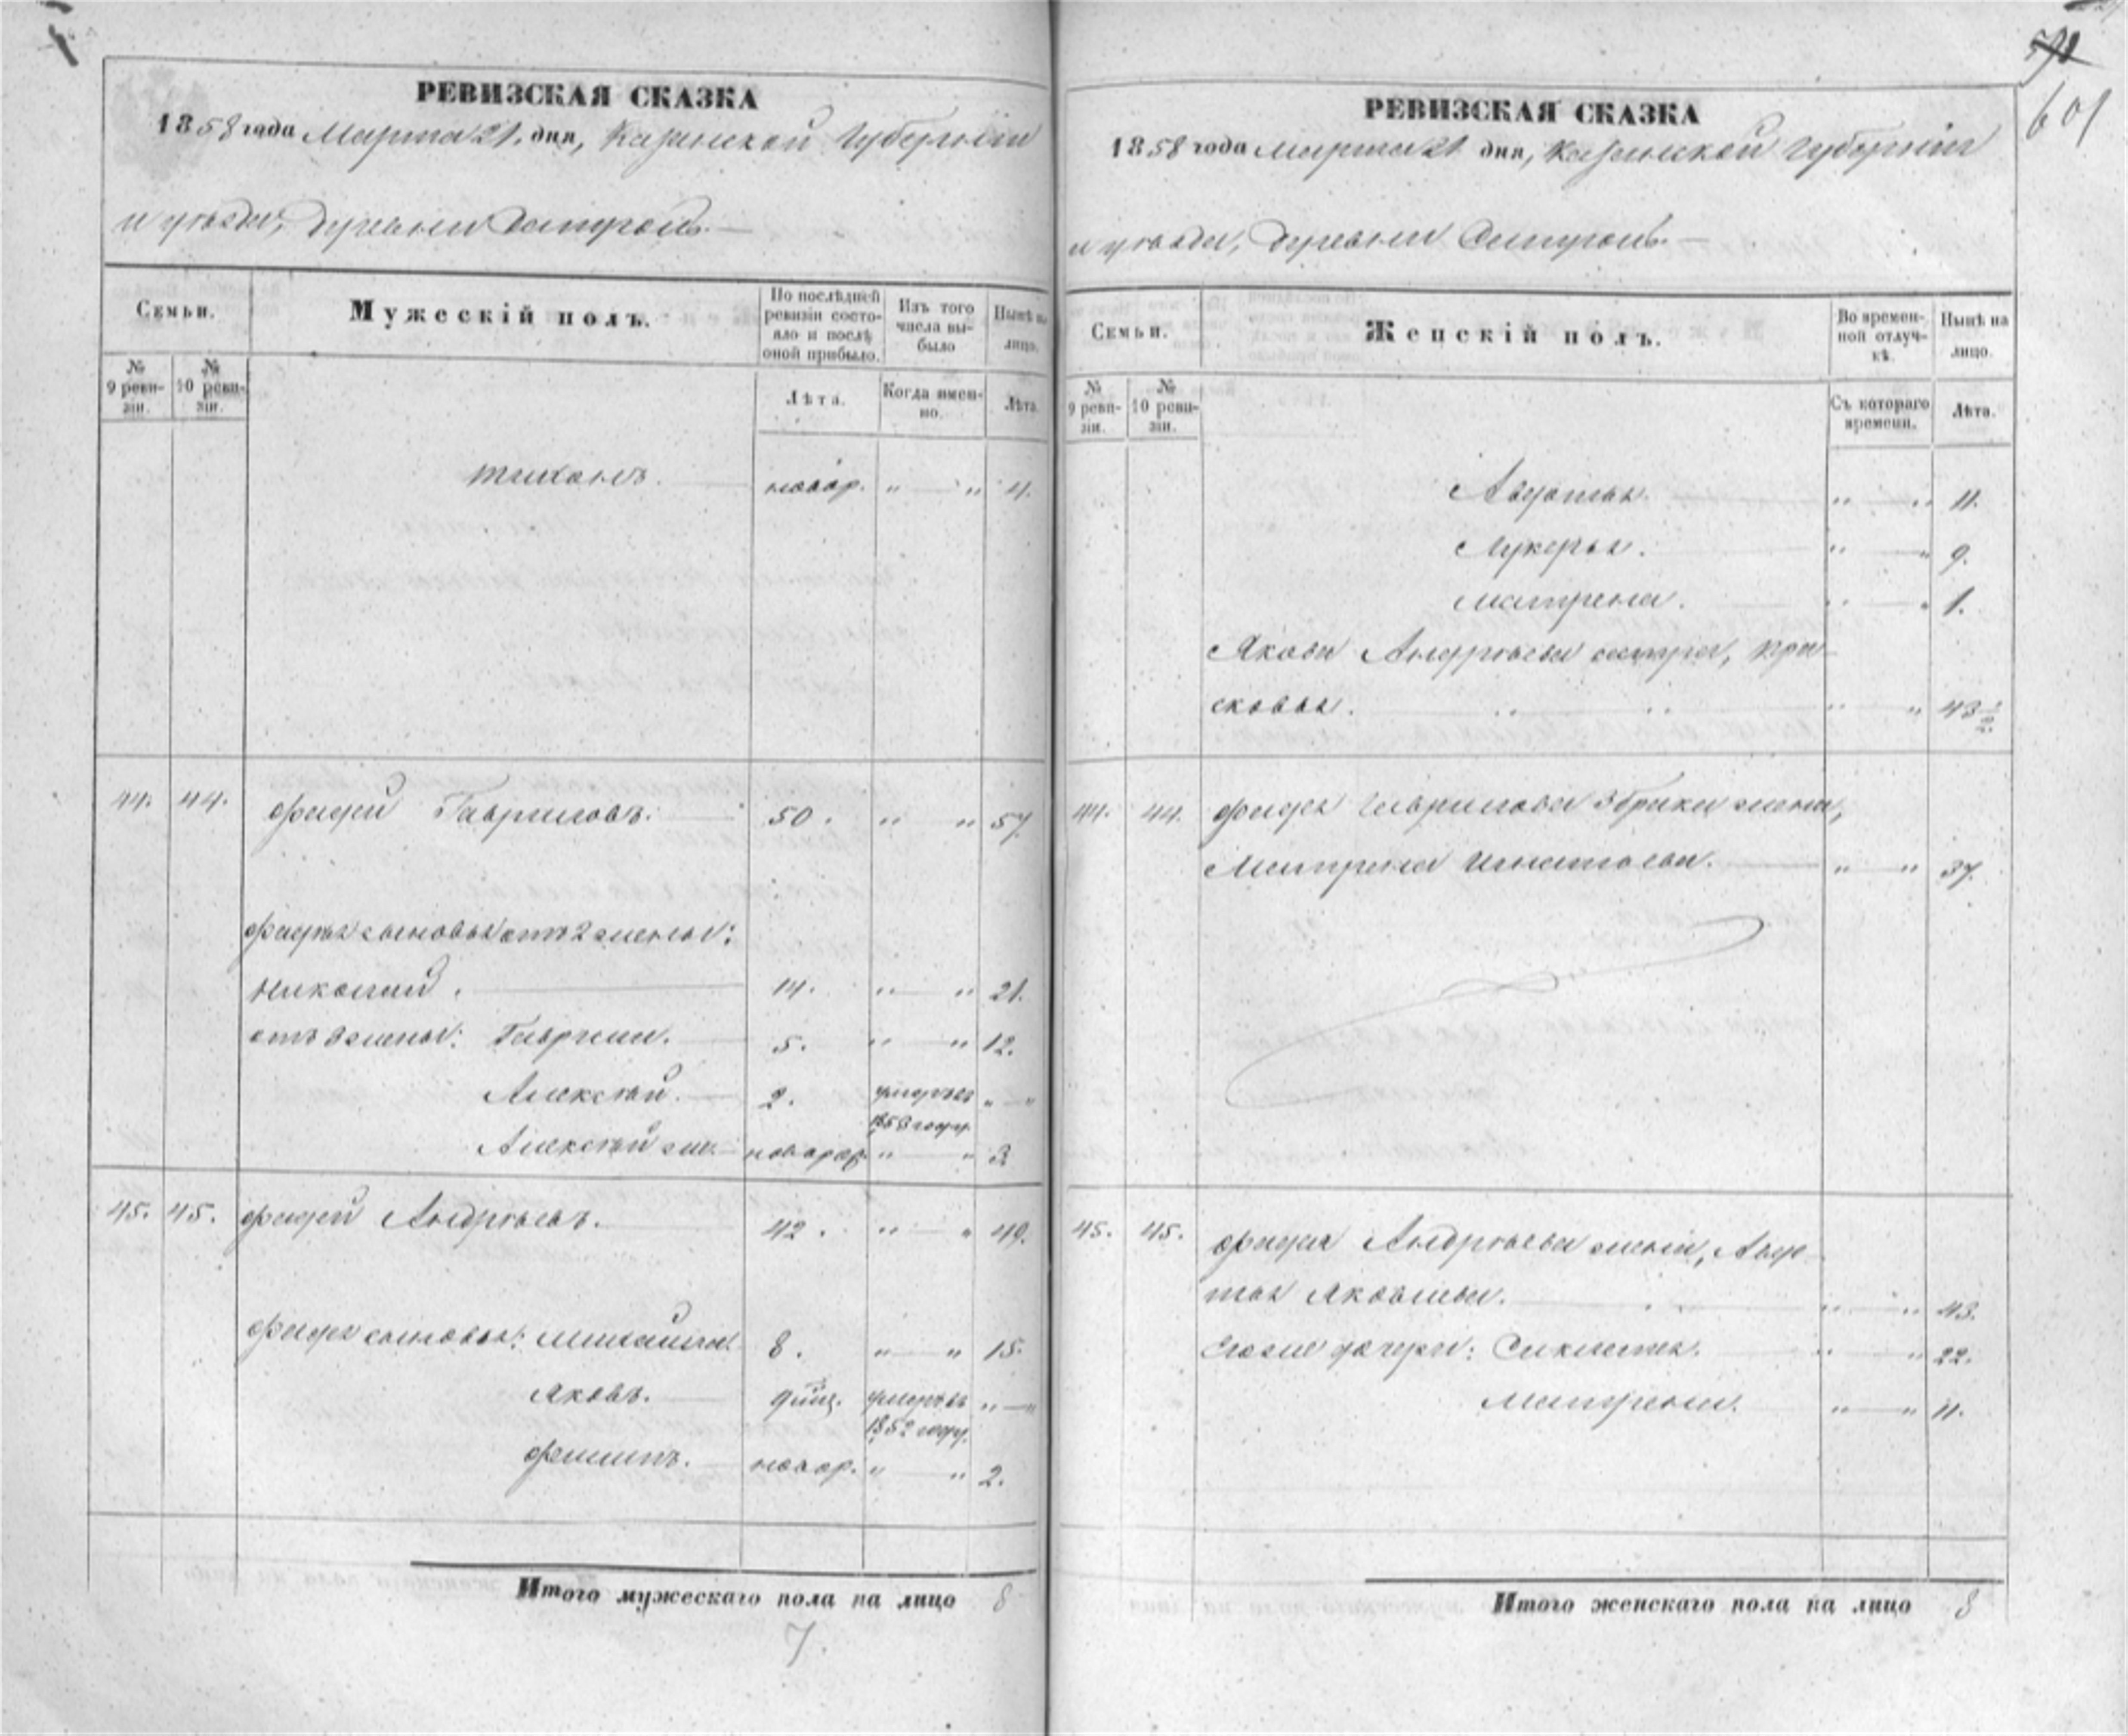 РЕВИЗСКАЯ СКАЗКА
1858 года Марта 21. дня, Казанской Губерніи
и уѣзда, деревни
Семьи.
Мужескій полъ.
По послѣдней ревизіи состояло и послѣ оной прибыло.
Изъ того числа выбыло
Нынѣ на лицо.
№ 9 ревизіи.
№ 10 ревизіи.
Лѣта.
Когда именно.
Лѣта.
Тихонъ. новор. " — " 4.
44. 44. Фадей Гавриловъ. 50. " " 57.
Фадея сыновья отъ 2 жены:
Николай. 14. " — " 21.
отъ 3 жены: Гаврила. 5. " — " 12.
Алексѣй. 2. умеръ въ 1853 году. " — "
Алексѣй же. новорож. " — " 3
45. 45. Фадей Андреевъ. 42. " — " 49.
Фадея сыновья: Михайла. 8. " — " 15.
Яковъ. умеръ въ 1852 году. " — "
Филипъ. новор. " — " 2.
Итого мужескаго пола на лицо 8
7.
601
РЕВИЗСКАЯ СКАЗКА
1858 года Марта 21 дня, Казанской Губерніи
и уѣзда, деревни
Семьи.
Женскій полъ.
Во временной отлучкѣ.
Нынѣ на лицо.
№ 9 ревизіи.
№ 10 ревизіи.
Съ котораго времени.
Лѣта.
Авдотья. " — " 11.
Лукерья. " — " 9.
Матрена. " — " 1.
Якова Андрѣева сестра, Пра-
сковья. " " " " 43 1/2.
44. 44. Фадея Гаврилова 3 брака жена,
Матрена Игнатьева. " — " 37.
45. 45. Фадея Андрѣева жена, Авдо-
тья Яковлева. " " 43.
Его же дочери: Сиклетея. " — " 22.
Матрена. " — " 11.
Итого женскаго пола на лицо 8